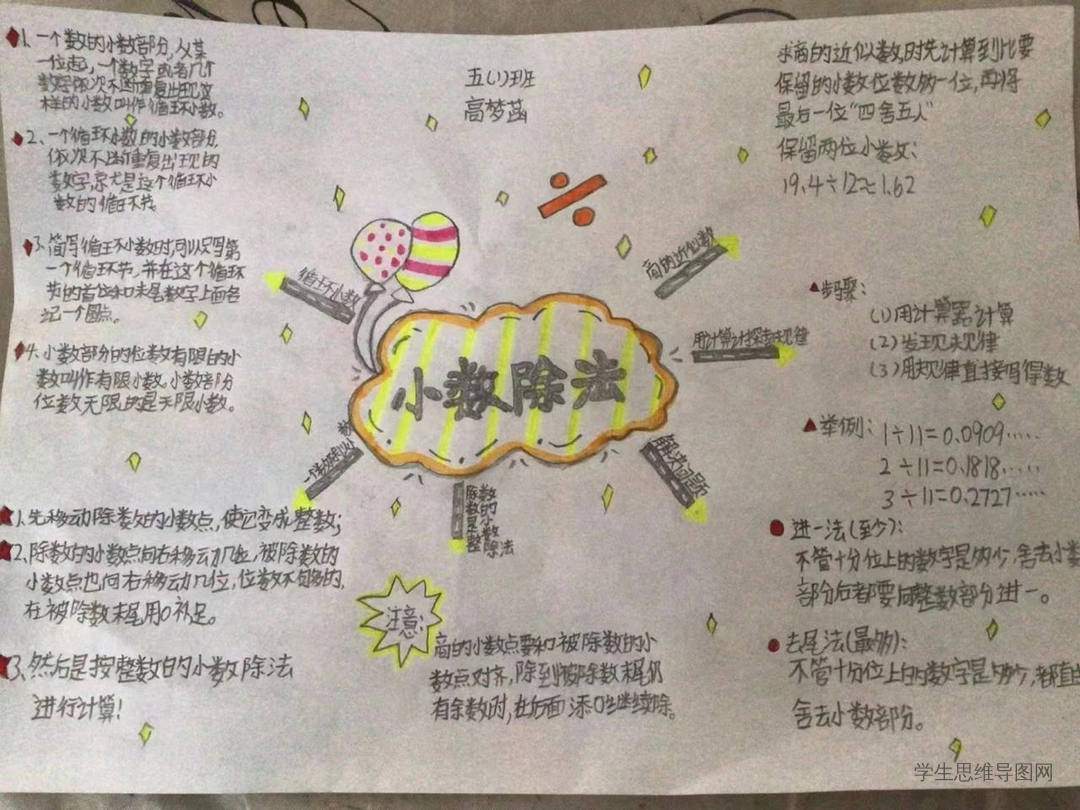 1、一个数的小数部分,从某
一位起,一个数字或者几个
数字依次不断重复出现,这
样的小数叫作循环小数。
2、一个循环小数的小数部分,
依次不断重复出现的
数字,就是这个循环小
数的循环节。
3、简写循环小数时,可以只写第
一个循环节,并在这个循环
节的首位和末尾数字上面各
记一个圆点。
4、小数部分的位数有限的小
数叫作有限小数,小数部分
位数无限的是无限小数。
五(1)班
高梦菡
求商的近似数时先计算到比要
保留的小数位数多一位,再将
最后一位“四舍五入”
保留两位小数:
19.4÷12≈1.62
循环小数
商的近似数
用计算计探索规律
小数除法
解决问题
一个数除以小数
除数是整数的小数除法
步骤:
(1)用计算器计算
(2)发现规律
(3)用规律直接写得数
举例:
1÷11=0.0909·····
2÷11=0.1818·····
3÷11=0.2727·····
进一法(至少):
不管十分位上的数字是多少,舍去小数
部分后都要向整数部分进一。
去尾法(最多):
不管十分位上的数字是多少,都直
舍去小数部分。
1、先移动除数的小数点,使它变成整数;
2、除数的小数点向右移动几位,被除数的
小数点也向右移动几位,位数不够的,
在被除数末尾用0补足。
3、然后是按整数的小数除法
进行计算!
注意:
商的小数点要和被除数的小
数点对齐,除到被除数末尾仍
有余数时,在后面添0再继续除。
学生思维导图网